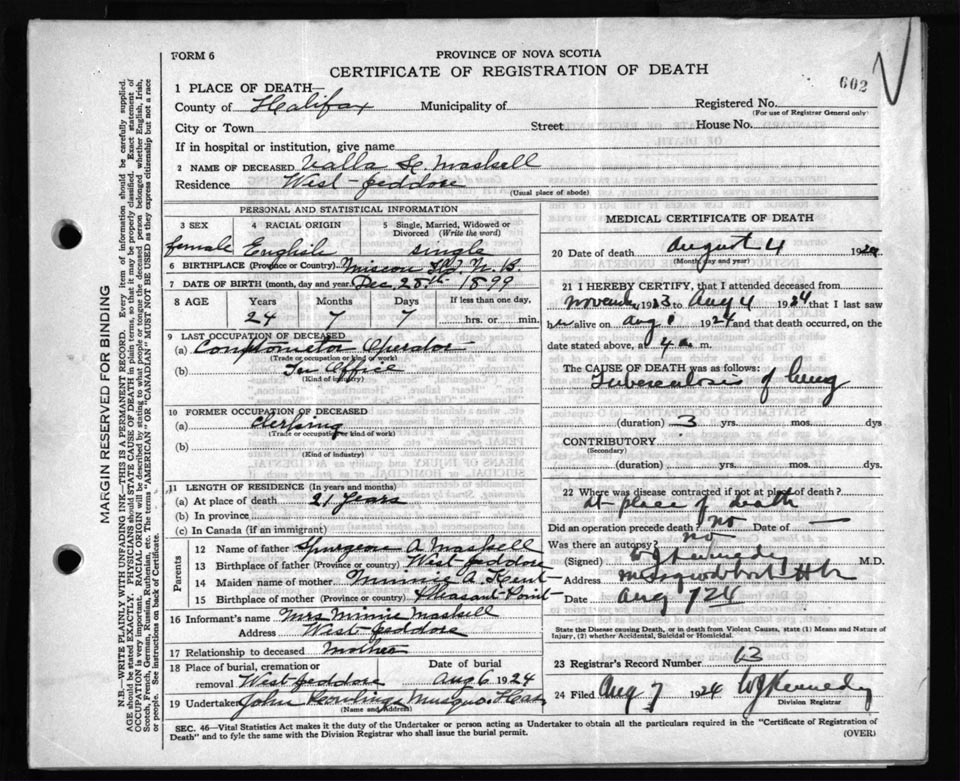 FORM 6
PROVINCE OF NOVA SCOTIA
CERTIFICATE OF REGISTRATION OF DEATH
602
1 PLACE OF DEATH—
County of Halifax Municipality of Registered No.
(For use of Registrar General only)
City or Town Street House No.
If in hospital or institution, give name
2 NAME OF DECEASED Valla Maskell
Residence West Jeddore
(Usual place of abode)
PERSONAL AND STATISTICAL INFORMATION
3 SEX 4 RACIAL ORIGIN 5 Single, Married, Widowed or Divorced (Write the word)
female English single
6 BIRTHPLACE (Province or Country) Miscou Isd. N. B.
7 DATE OF BIRTH (month, day and year) Dec. 28th 1899
8 AGE Years Months Days If less than one day,
24 7 7 hrs. or min.
9 LAST OCCUPATION OF DECEASED
(a) Comptometer Operator
(Trade or occupation or kind of work)
(b) In Office
(Kind of industry)
10 FORMER OCCUPATION OF DECEASED
(a) clerking
(Trade or occupation or kind of work)
(b)
(Kind of industry)
11 LENGTH OF RESIDENCE (In years and months)
(a) At place of death 21 years
(b) In province
(c) In Canada (if an immigrant)
Parents
12 Name of father Spurgeon A Maskell
13 Birthplace of father (Province or country) West Jeddore
14 Maiden name of mother Minnie A. Kent
15 Birthplace of mother (Province or country) Pleasant Point
16 Informant's name Mrs Minnie Maskell
Address West Jeddore
17 Relationship to deceased Mother
18 Place of burial, cremation or Date of burial
removal West Jeddore Aug 6 1924
19 Undertaker John Rowlings Musquo. Har
(Name and Address)
MEDICAL CERTIFICATE OF DEATH
20 Date of death August 4 1924
(Month, day and year)
21 I HEREBY CERTIFY, that I attended deceased from
November 1923 to Aug 4 1924 that I last saw
her alive on Aug 1924 and that death occurred, on the
date stated above, at 4 a. m.
The CAUSE OF DEATH was as follows:
Tuberculosis of lung
(duration) 3 yrs. mos. dys
CONTRIBUTORY
(Secondary)
(duration) yrs. mos. dys.
22 Where was disease contracted if not at place of death?
At place of death
Did an operation precede death? no Date of —
Was there an autopsy? no
(Signed) W J Kennedy M.D.
Address Musquodoboit Hbr
Date Aug 7 24
State the Disease causing Death, or in death from Violent Causes, state (1) Means and Nature of
Injury, (2) whether Accidental, Suicidal or Homicidal.
23 Registrar's Record Number 63
24 Filed Aug 7 1924 W J Kennedy
Division Registrar
SEC. 46—Vital Statistics Act makes it the duty of the Undertaker or person acting as Undertaker to obtain all the particulars required in the "Certificate of Registration of
Death" and to fyle the same with the Division Registrar who shall issue the burial permit. (OVER)
MARGIN RESERVED FOR BINDING
N.B.—WRITE PLAINLY WITH UNFADING INK—THIS IS A PERMANENT RECORD. Every item of information should be carefully supplied.
AGE should be stated EXACTLY. PHYSICIANS should STATE CAUSE OF DEATH in plain terms, so that it may be properly classified. Exact statement of
OCCUPATION is very important. RACIAL ORIGIN will be described by stating to what people or tongue the deceased person belonged whether English, Irish,
Scotch, French, German, Russian, Ruthenian, etc. The terms "AMERICAN" or "CANADIAN" MUST NOT BE USED as they express citizenship but not a race
or people. See instructions on back of Certificate.